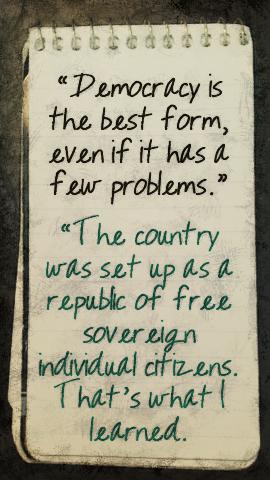 “Democracy is
the best form,
even if it has a
few problems.”
“The country
was set up as a
republic of free
sovereign
individual citizens.
That's what I
learned.